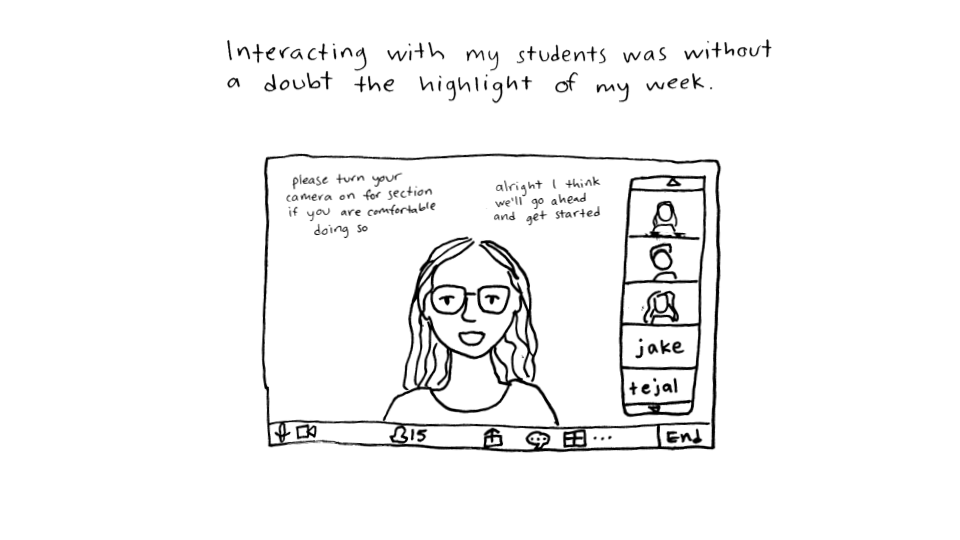 Interacting with my students was without
a doubt the highlight of my week.
please turn your
camera on for section
if you are comfortable
doing so
alright I think
we'll go ahead
and get started
jake
tejal
15
End